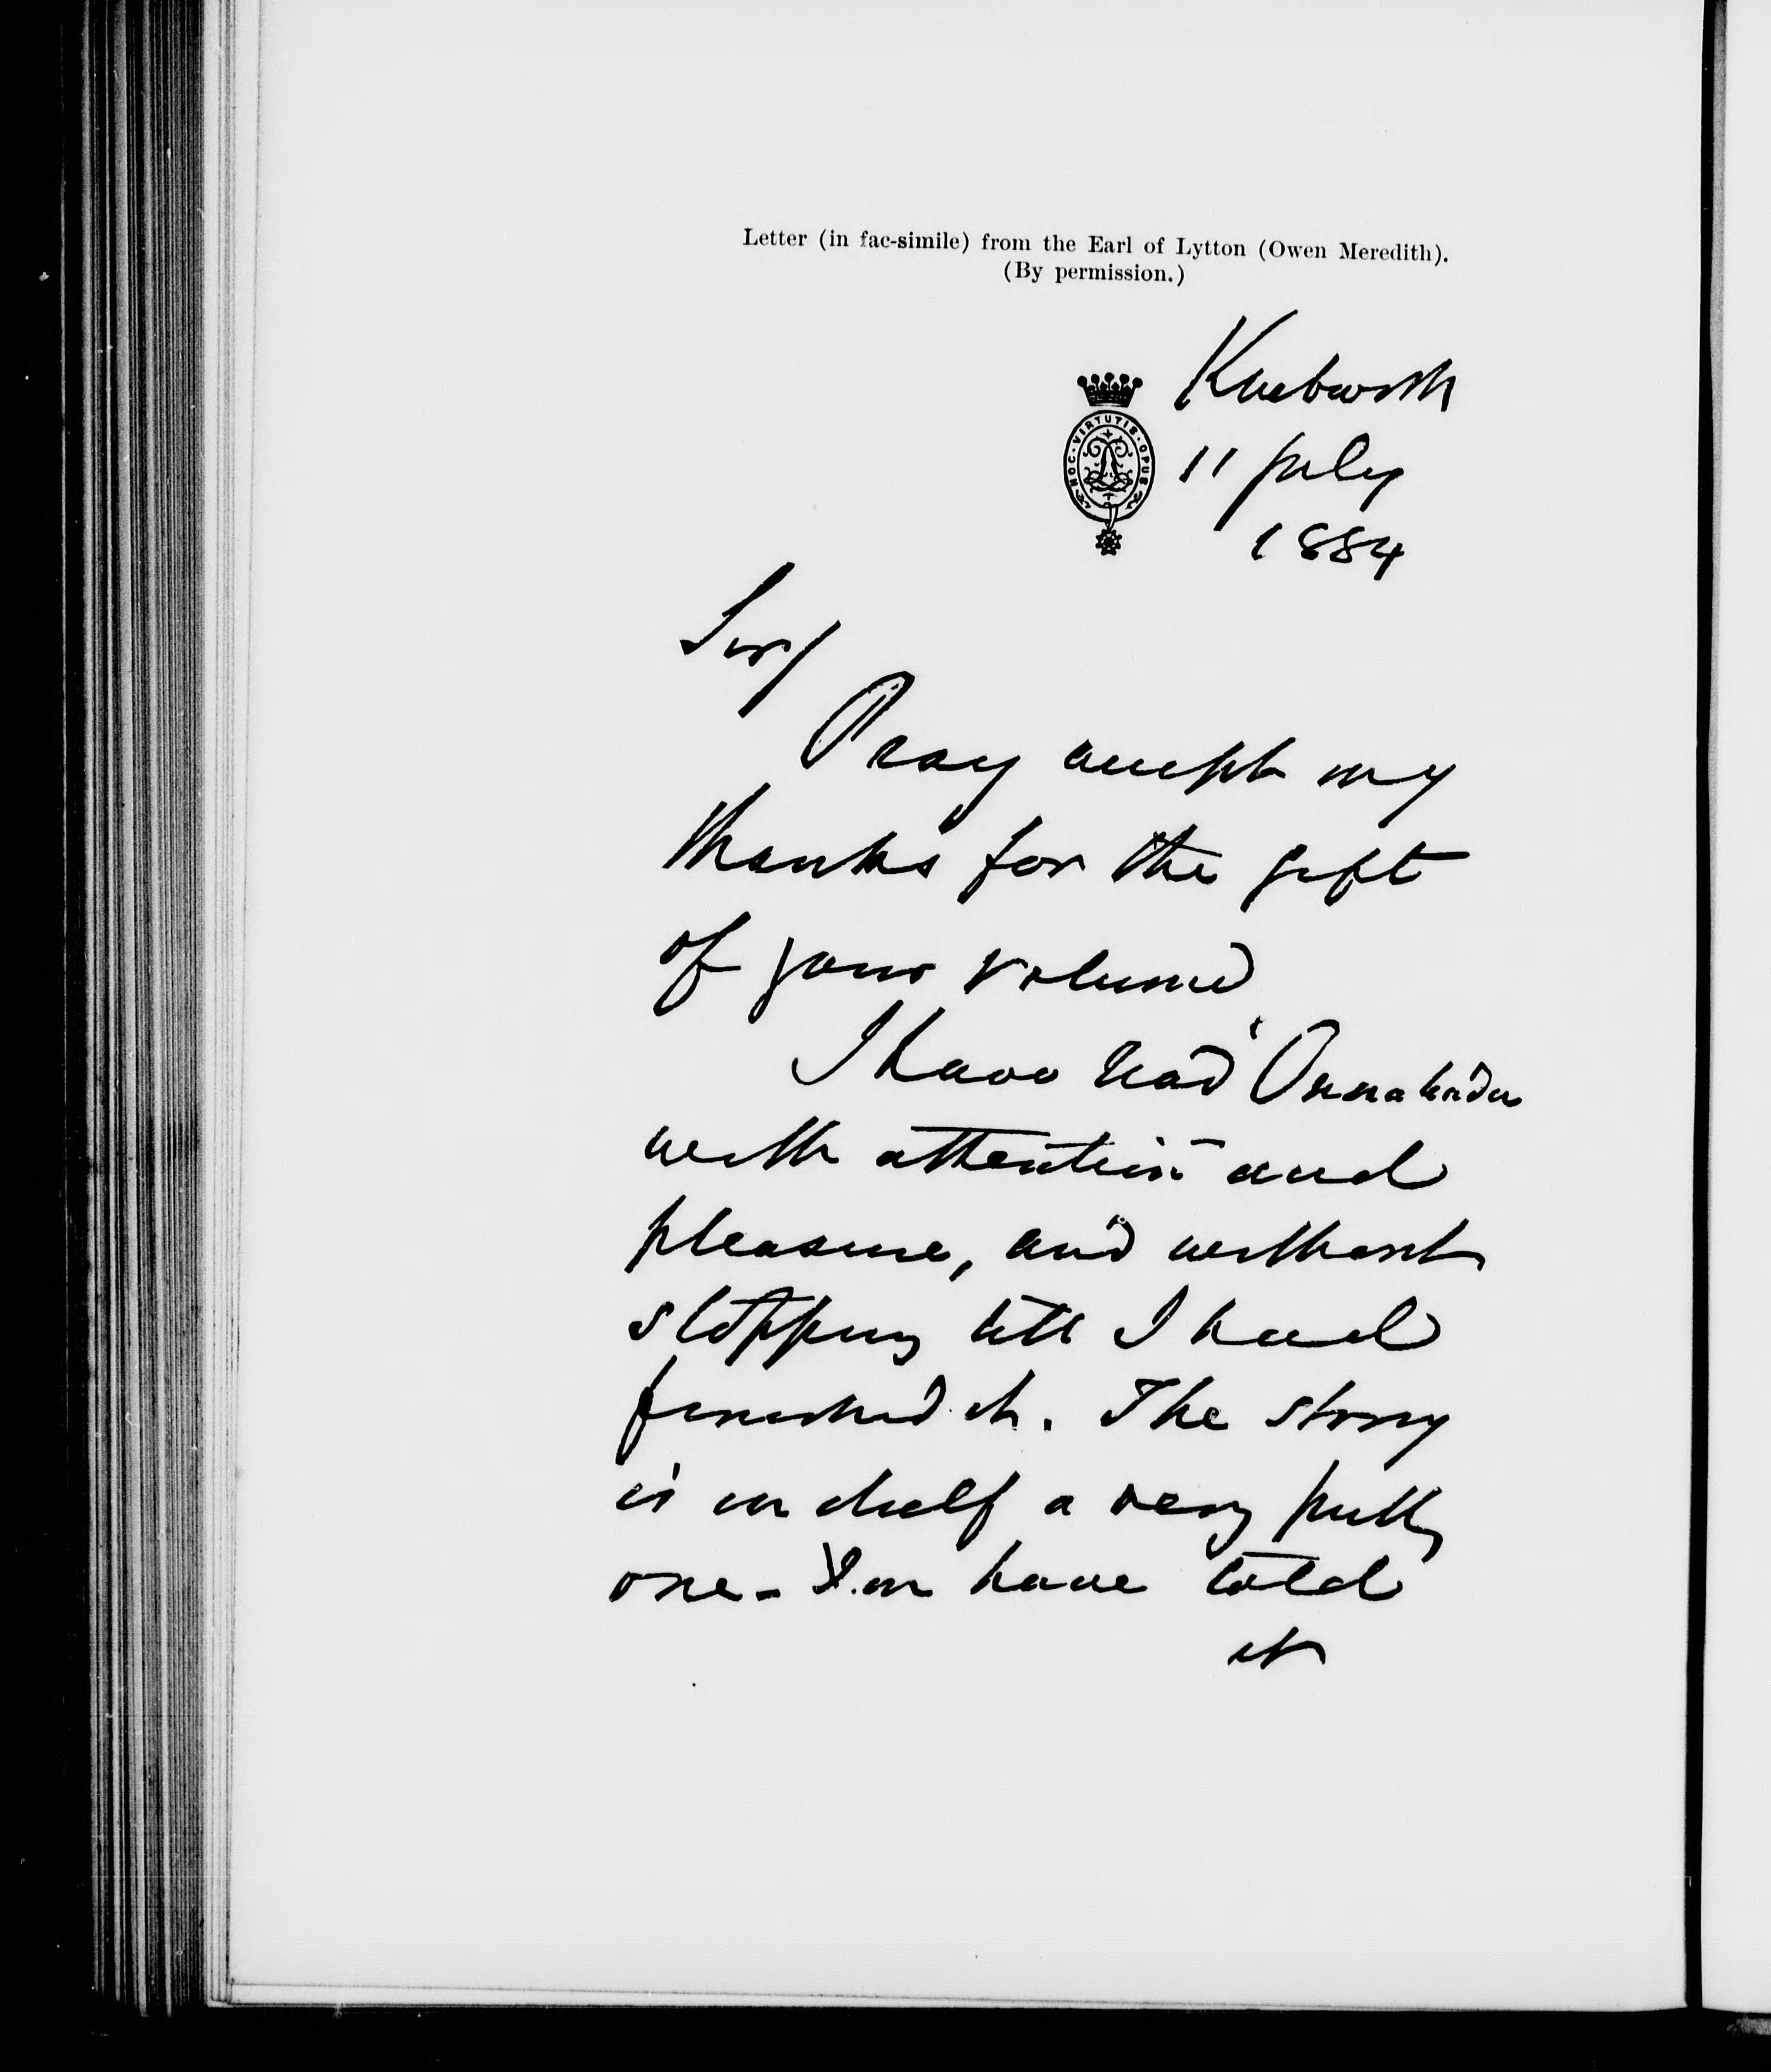 Letter (in fac-simile) from the Earl of Lytton (Owen Meredith).
(By permission.)
HOC · VIRTUTIS · OPUS
Knebworth
11 July
1884
Sir/
Pray accept my
thanks for the gift
of your volume
I have read
with attention and
pleasure, and without
stopping till I had
finished it. The story
is in itself a very pretty
one - You have told
it